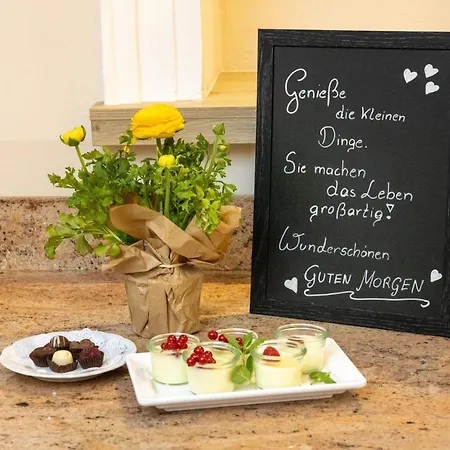 Genieße
die kleinen
Dinge.
Sie machen
das Leben
großartig!
Wunderschönen
GUTEN MORGEN